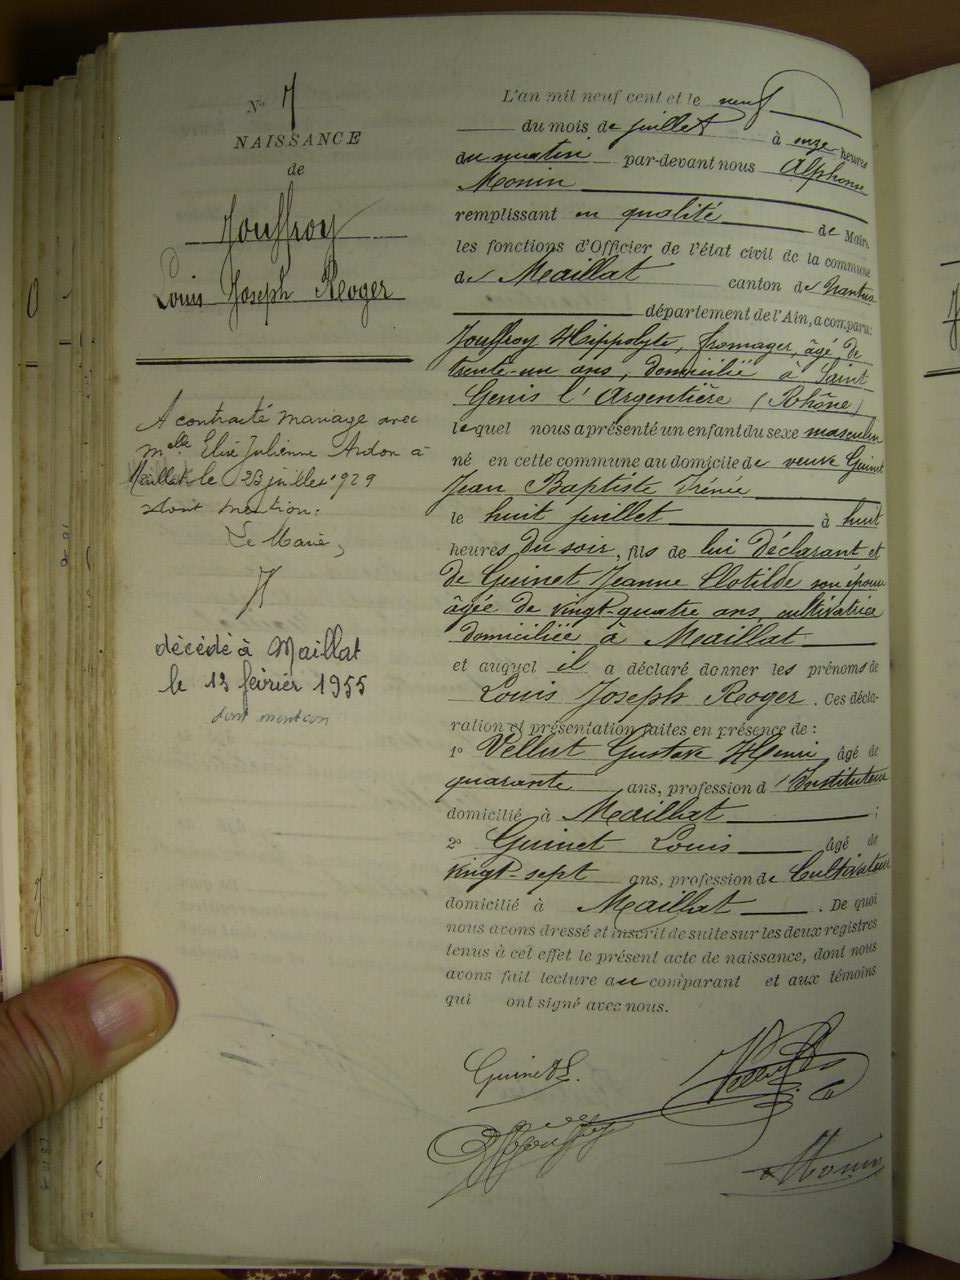 N° 7
NAISSANCE
de
Jouffroy
Louis Joseph Roger
A contracté mariage avec
Melle Elise Julienne Ardon à
Maillat le 23 juillet 1929
dont mention.
Le Maire,
décédé à Maillat
le 13 février 1955
dont mention
L'an mil neuf cent et le neuf
du mois de juillet à onze heures
du matin par-devant nous Alphonse
Monin
remplissant en qualité de Maire
les fonctions d'Officier de l'état civil de la commune
de Maillat canton de Nantua
département de l'Ain, a comparu:
Jouffroy Hippolyte, fromager, âgé de
trente-un ans, domicilié à Saint
Genis l'Argentière (Rhône)
lequel nous a présenté un enfant du sexe masculin
né en cette commune au domicile de veuve Guinet
Jean Baptiste Irénée
le huit juillet à huit
heures du soir, fils de lui déclarant et
de Guinet Jeanne Clotilde son épouse
âgée de vingt-quatre ans, cultivatrice
domiciliée à Maillat
et auquel il a déclaré donner les prénoms de
Louis Joseph Roger. Ces décla-
ration et présentation faites en présence de :
1° Vellut Gustave Henri, âgé de
quarante ans, profession d'Instituteur
domicilié à Maillat ;
2° Guinet Louis âgé de
vingt-sept ans, profession de Cultivateur
domicilié à Maillat. De quoi
nous avons dressé et inscrit de suite sur les deux registres
tenus à cet effet le présent acte de naissance, dont nous
avons fait lecture au comparant et aux témoins
qui ont signé avec nous.
Guinet L.
Vellut
Jouffroy
Monin